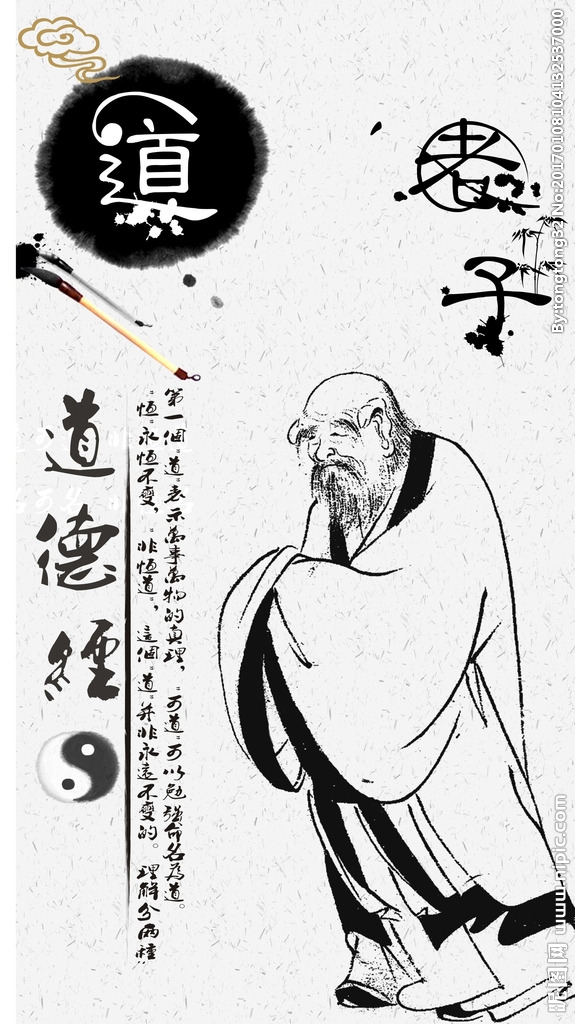 道
老子
道德經
第一個“道”表示萬事萬物的真理，“可道”可以勉強命名為道。
“恆”永恆不變，“非恆道”，這個“道”并非永遠不變的。理解分兩種”
By:tongtong32 No:20170108104132537000
昵图网 www.nipic.com